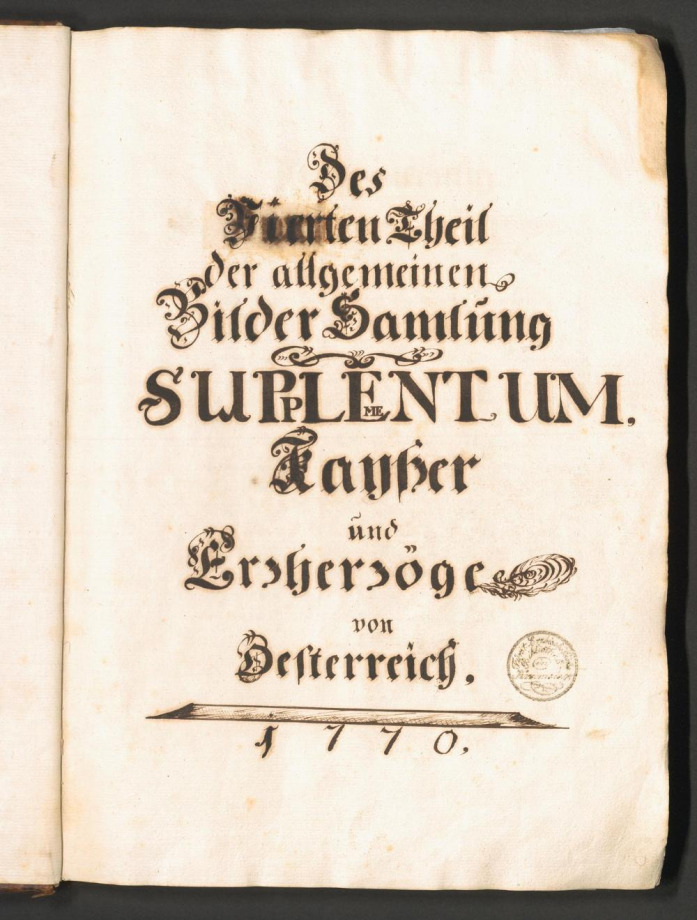 Des
Vierten Theil
der allgemeinen
Bilder Samlūng
SUPPLEMENTUM,
Kayßer
ūnd
Erzherzöge
von
Oesterreich,
1770,